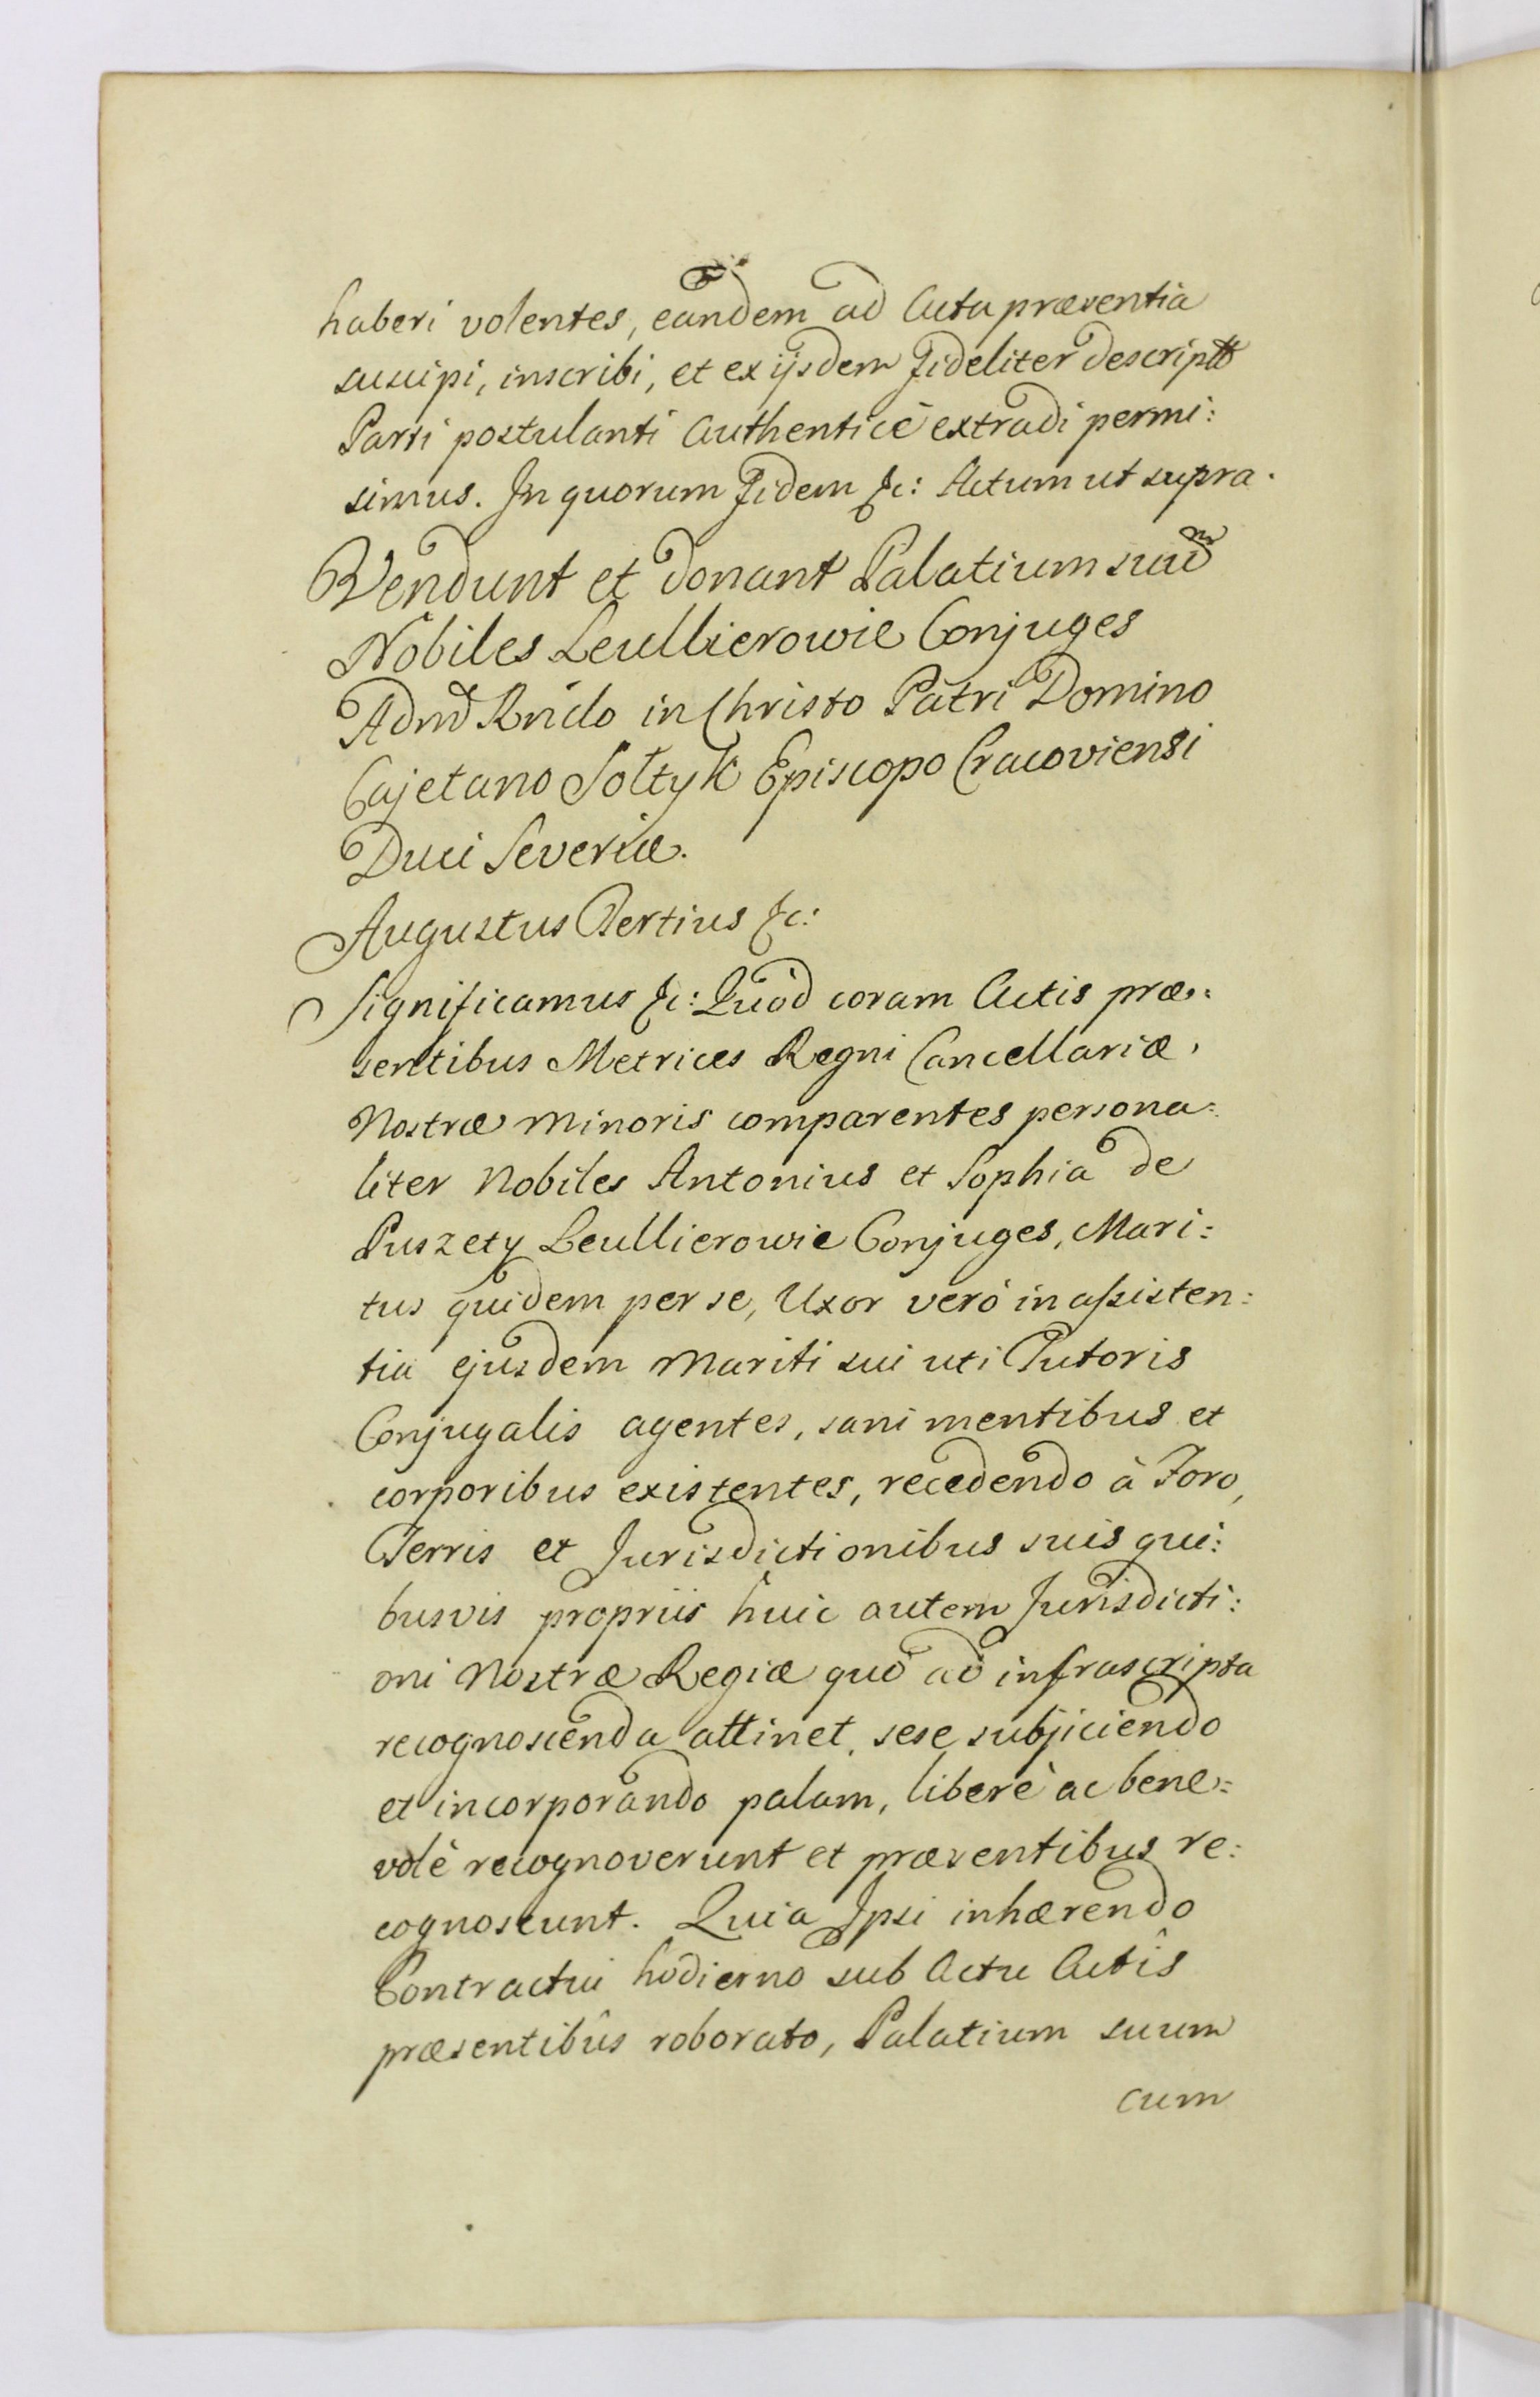 haberi volentes, eandem ad Acta præsentia
suscipi, inscribi, et ex ijsdem fideliter descriptã
Parti postulanti Authenticè extradi permi:
simus. In quorum fidem &c: Actum ut supra.
Vendunt et donant Palatium suũ
Nobiles Leullierowie Conjuges
Admd Rndo in Christo Patri Domino
Cajetano Sołtyk Episcopo Cracoviensi
Duci Severiæ.
Augustus Tertius &c:
Significamus &c: Quòd coram Actis præ:
sentibus Metrices Regni Cancellariæ,
Nostræ Minoris comparentes persona:
liter Nobiles Antonius et Sophia de
Puszety Leullierowie Conjuges, Mari:
tus quidem per se, Uxor verò in assisten:
tia ejusdem Mariti sui uti Tutoris
Conjugalis agentes, sani mentibus et
corporibus existentes, recedendo à Foro,
Terris et Jurisdictionibus suis qui:
busvis propriis huic autem Jurisdicti:
oni Nostræ Regiæ quo ad infrascripta
recognoscenda attinet, sese subjiciendo
et incorporando palam, liberè ac bene:
volè recognoverunt et præsentibus re:
cognoscunt. Quia Ipsi inhærendo
Contractui hodierno sub Actu Actîs
præsentibûs roborato, Palatium suum
cum